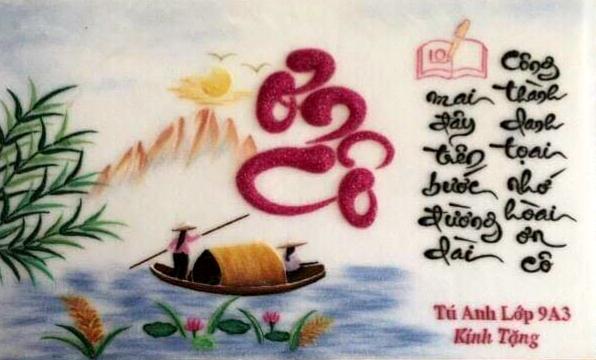 ơn
Cô
10
mai
đây
tiến
bước
đường
dài
Công
thành
danh
tọai
nhớ
hoài
ơn
cô
Tú Anh Lớp 9A3
Kính Tặng